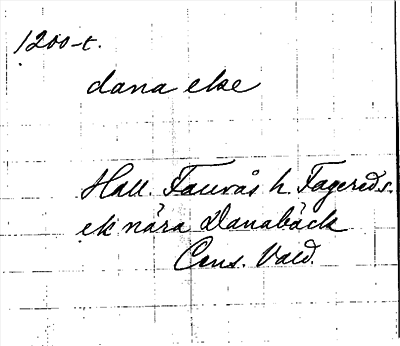 1200-t.
dana eke
Hall. Faurås h. Fagereds.
ek nära Danabäck
Cons. Vald.